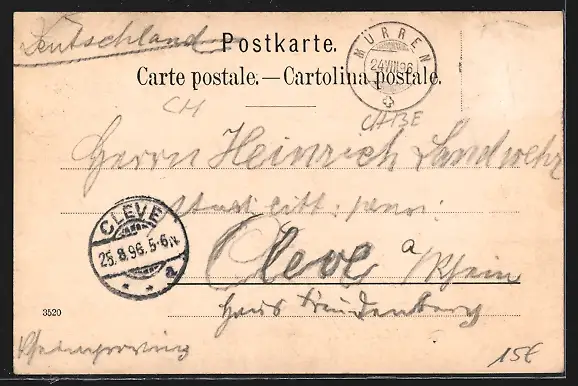 Deutschland
Postkarte.
Carte postale.—Cartolina postale.
MÜRREN
24 VIII 96
CH
CH BE
Herrn Heinrich Landwehr
CLEVE
25.8.96.5-6N
* * a
Cleve a/Rhein
Haus Freudenberg
3520
Rheinprovinz
15€